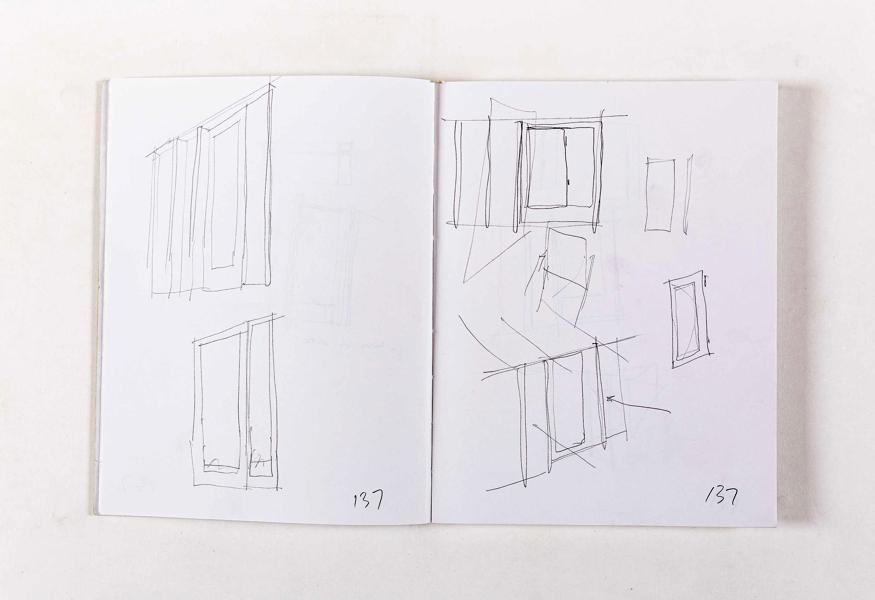 137
137